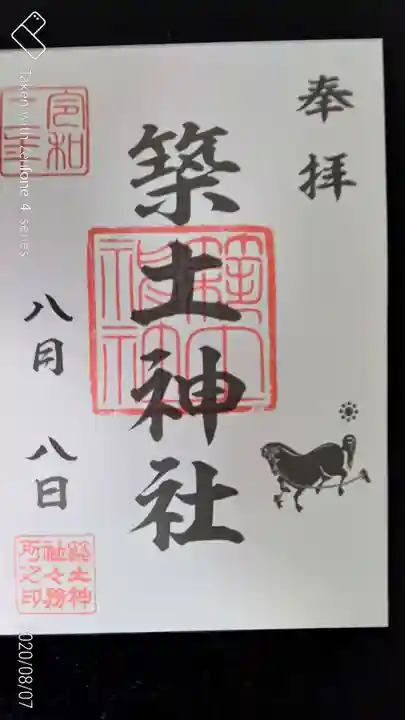 奉拝
築土神社
令和
二年
八月 八日
築土神
社々務
所之印
Taken with zenfone 4 series
2020/08/07